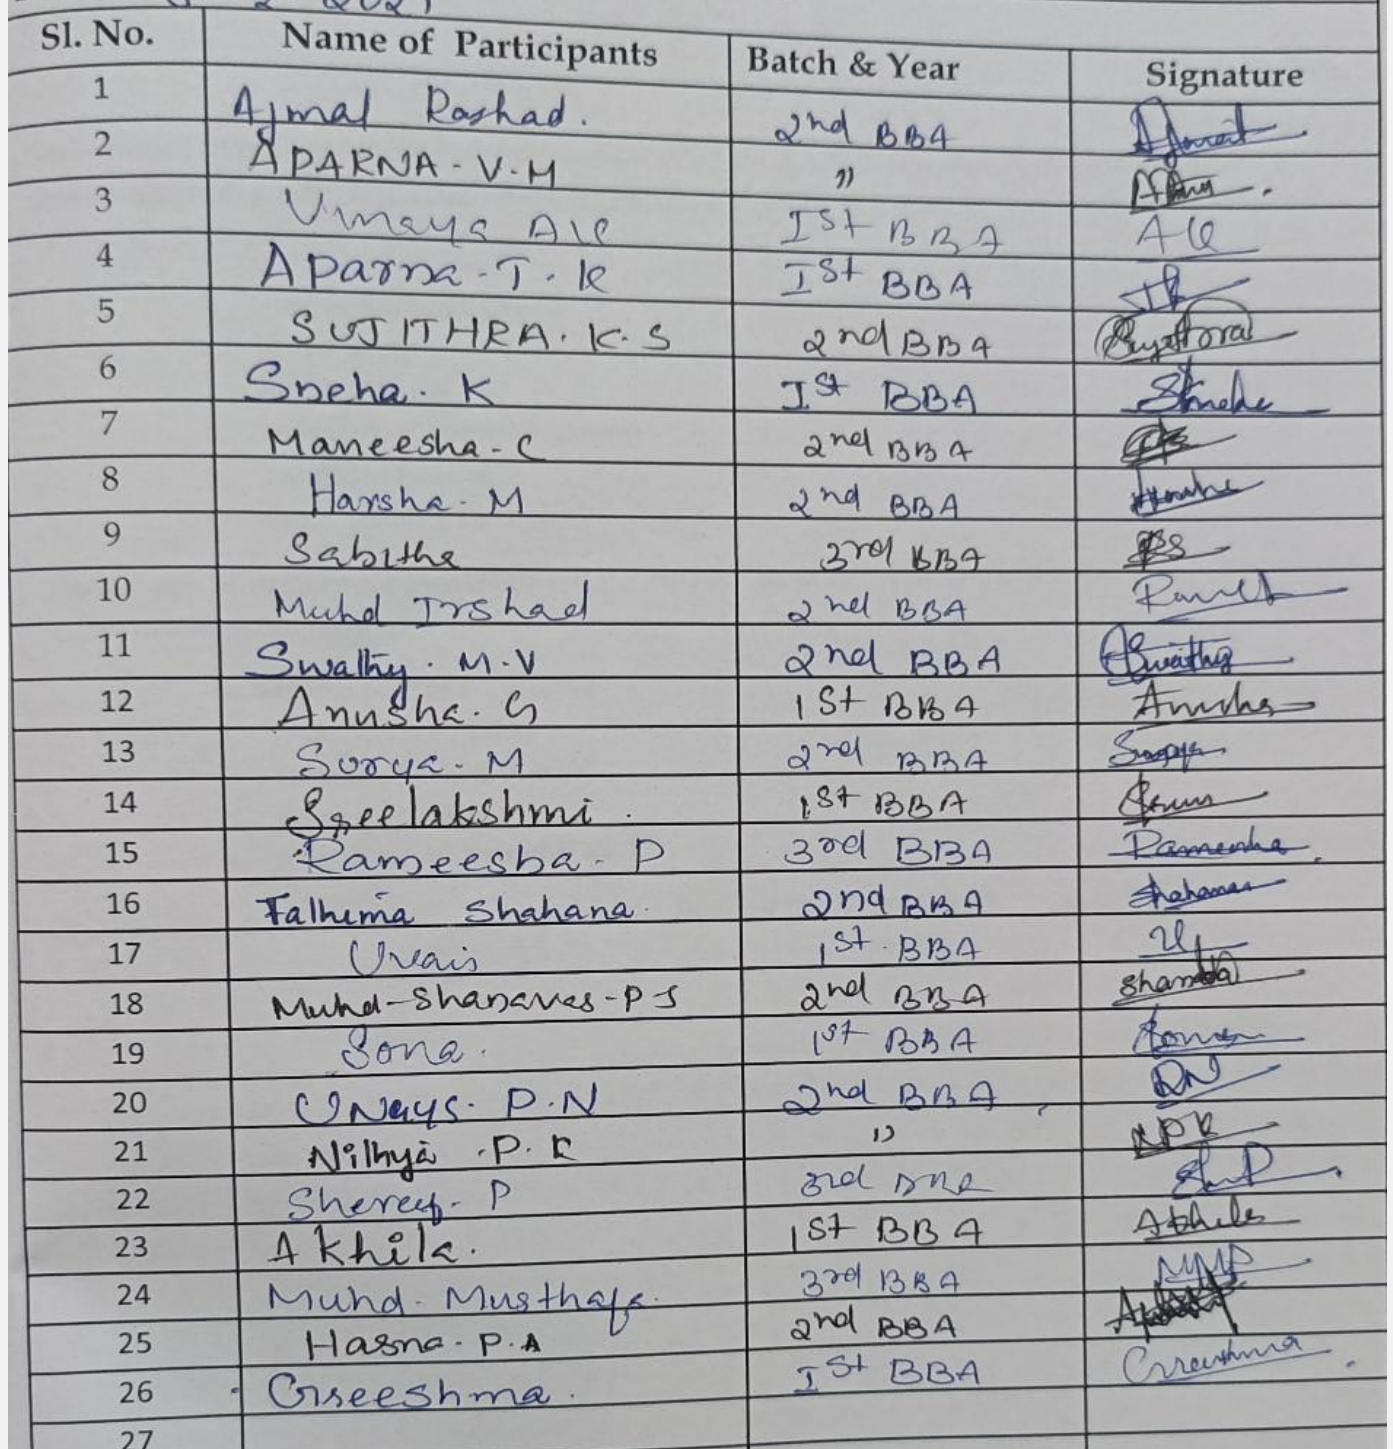 2021
Sl. No. Name of Participants Batch & Year Signature
1 Ajmal Rashad. 2nd BBA
2 APARNA-V.M "
3 Vinaya 1st BBA
4 Aparna-T.K 1st BBA
5 SUJITHRA.K.S 2nd BBA
6 Sneha. K 1st BBA Sneha
7 Maneesha-C 2nd BBA
8 Harsha-M 2nd BBA Harsha
9 Sabitha 3rd BBA
10 Muhd Irshad 2nd BBA
11 Swathy. M.V 2nd BBA Swathy
12 Anusha. G 1st BBA Anusha
13 Surya. M 2nd BBA Surya
14 Sreelakshmi. 1st BBA
15 Rameesha-P 3rd BBA Rameesha
16 Fathima Shahana. 2nd BBA Shahana
17 Uvais 1st BBA
18 Muhd-Shanavas-PS 2nd BBA
19 Sona. 1st BBA Sona
20 Unays. P.N 2nd BBA
21 Nithya .P.K " NPK
22 Shereef. P 3rd BBA
23 Akhila. 1st BBA Akhila
24 Muhd-Musthafa. 3rd BBA
25 Hasna-P.A 2nd BBA
26 Greeshma. 1st BBA Greeshma
27